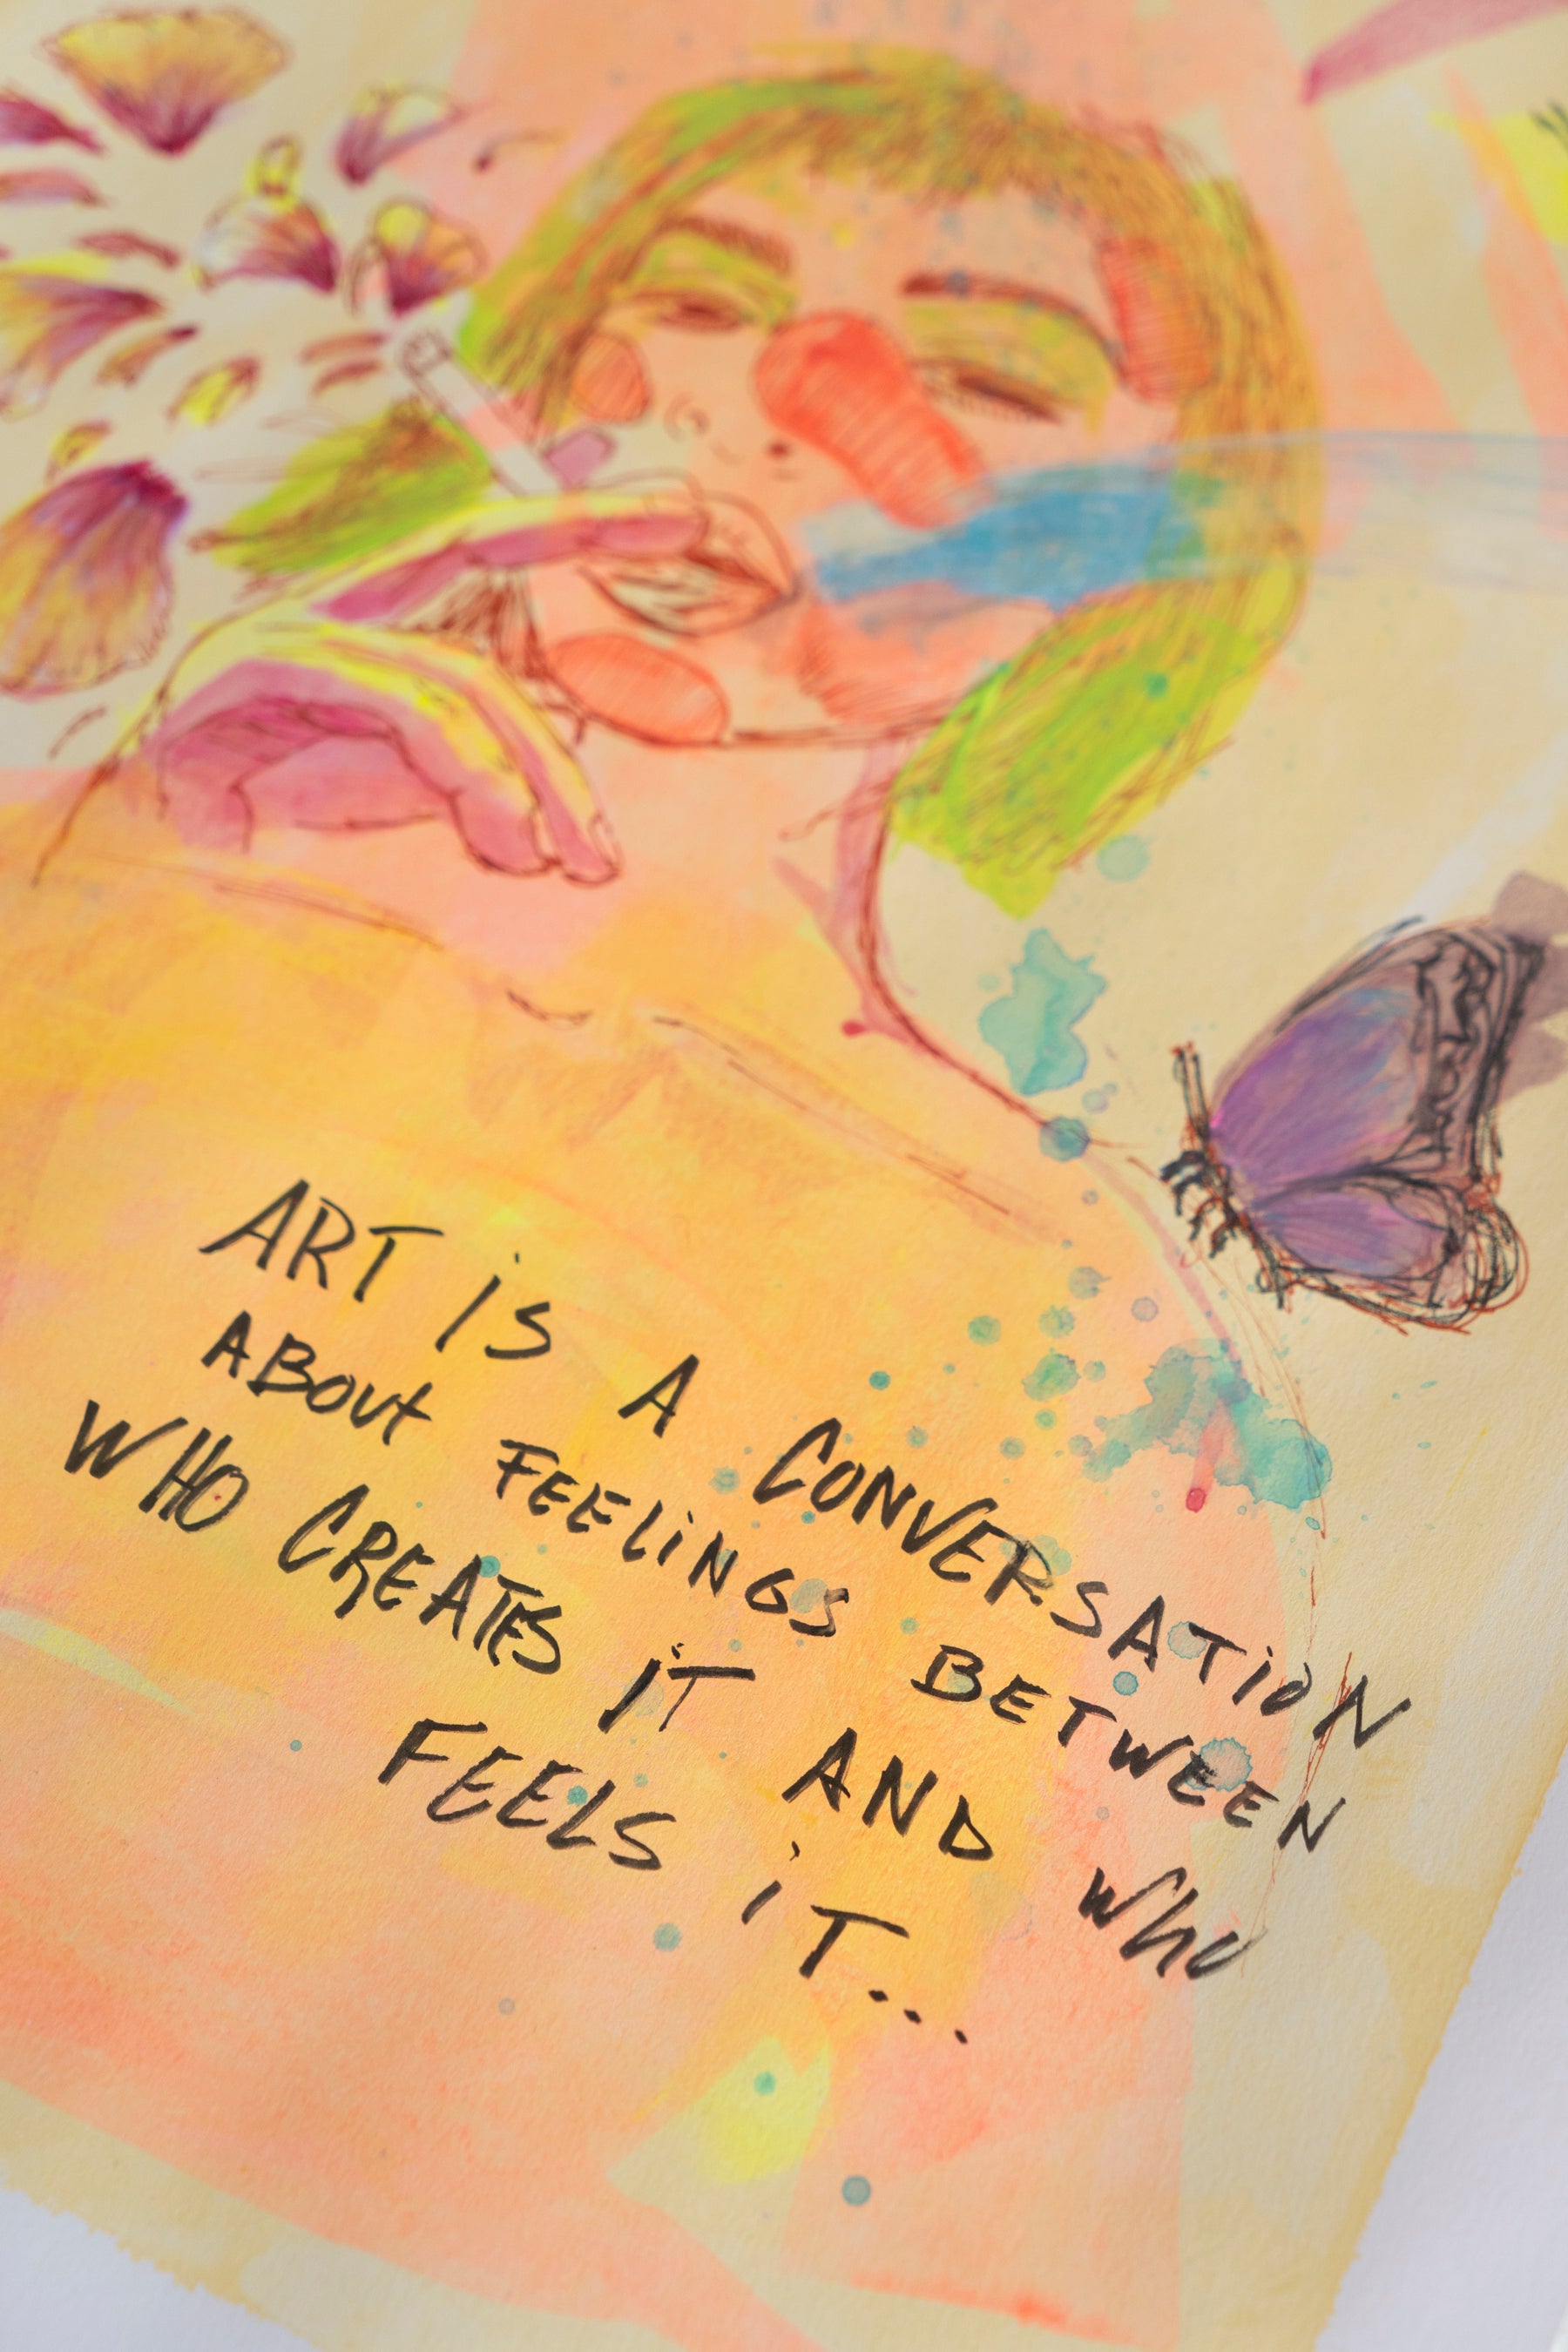 ART iS A CONVERSATION
ABOUt FEELiNGS BETWEEN
WHO CREATES iT AND Who
FEELS iT...